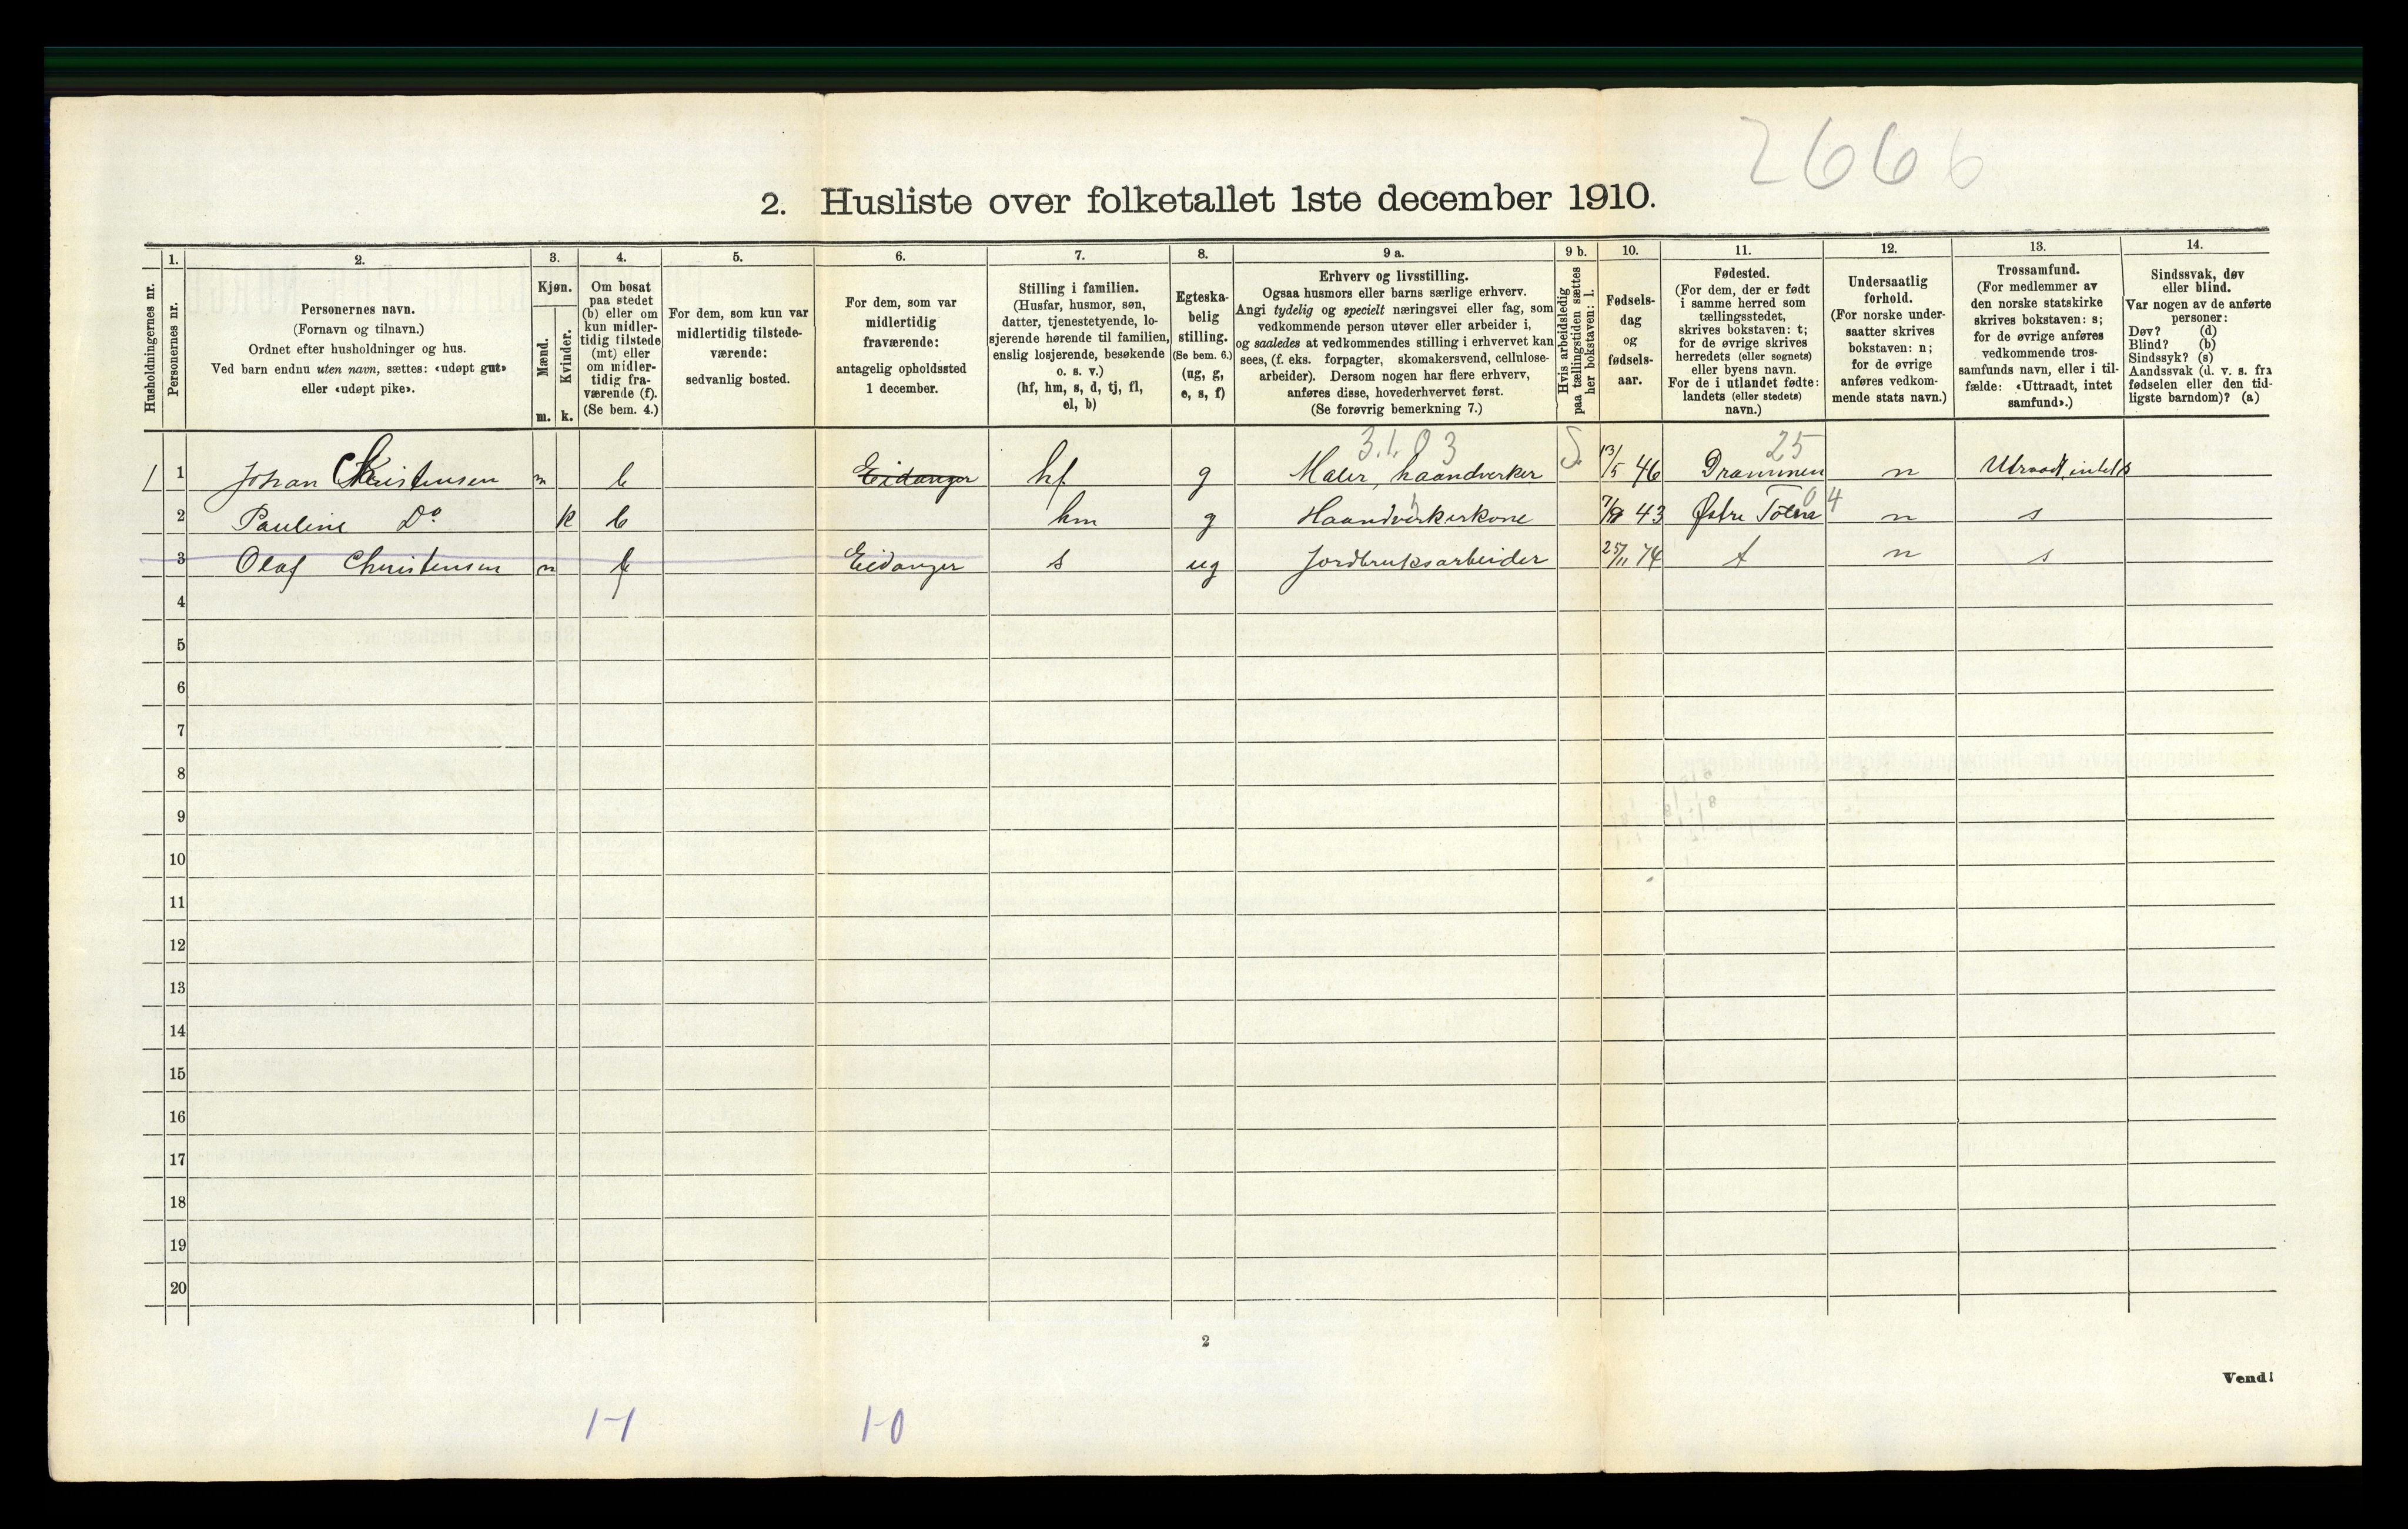 2666
2. Husliste over folketallet 1ste december 1910.
Husholdningernes nr.
1. Personernes nr.
2. Personernes navn. (Fornavn og tilnavn.) Ordnet efter husholdninger og hus. Ved barn endnu uten navn, sættes: «udøpt gut» eller «udøpt pike».
3. Kjøn. Mænd. m. Kvinder. k.
4. Om bosat paa stedet (b) eller om kun midler- tidig tilstede (mt) eller om midler- tidig fra- værende (f). (Se bem. 4.)
5. For dem, som kun var midlertidig tilstede- værende: sedvanlig bosted.
6. For dem, som var midlertidig fraværende: antagelig opholdssted 1 december.
7. Stilling i familien. (Husfar, husmor, søn, datter, tjenestetyende, lo- sjerende hørende til familien, enslig losjerende, besøkende o. s. v.) (hf, hm, s, d, tj, fl, el, b)
8. Egteska- belig stilling. (Se bem. 6.) (ug, g, e, s, f)
9 a. Erhverv og livsstilling. Ogsaa husmors eller barns særlige erhverv. Angi tydelig og specielt næringsvei eller fag, som vedkommende person utøver eller arbeider i, og saaledes at vedkommendes stilling i erhvervet kan sees, (f. eks. forpagter, skomakersvend, cellulose- arbeider). Dersom nogen har flere erhverv, anføres disse, hovederhvervet først. (Se forøvrig bemerkning 7.)
9 b. Hvis arbeidsledig paa tællingstiden sættes her bokstaven: l.
10. Fødsels- dag og fødsels- aar.
11. Fødested. (For dem, der er født i samme herred som tællingsstedet, skrives bokstaven: t; for de øvrige skrives herredets (eller sognets) eller byens navn. For de i utlandet fødte: landets (eller stedets) navn.)
12. Undersaatlig forhold. (For norske under- saatter skrives bokstaven: n; for de øvrige anføres vedkom- mende stats navn.)
13. Trossamfund. (For medlemmer av den norske statskirke skrives bokstaven: s; for de øvrige anføres vedkommende tros- samfunds navn, eller i til- fælde: «Uttraadt, intet samfund».)
14. Sindssvak, døv eller blind. Var nogen av de anførte personer: Døv? (d) Blind? (b) Sindssyk? (s) Aandssvak (d. v. s. fra fødselen eller den tid- ligste barndom)? (a)
3.1.03 25
1 1 Johan Christensen m b Eidanger hf g Maler, haandverker S. 13/5 46 Drammen n Utraadt, intet s
2 Pauline Do k b hm g Haandverkerkone 43 Østre Toten 04 n s
3 Olaf Christensen m f Eidanger s ug Jordbruksarbeider 25/11 74 t n s
4
5
6
7
8
9
10
11
12
13
14
15
16
17
18
19
20
2
Vend!
1-1 1-0